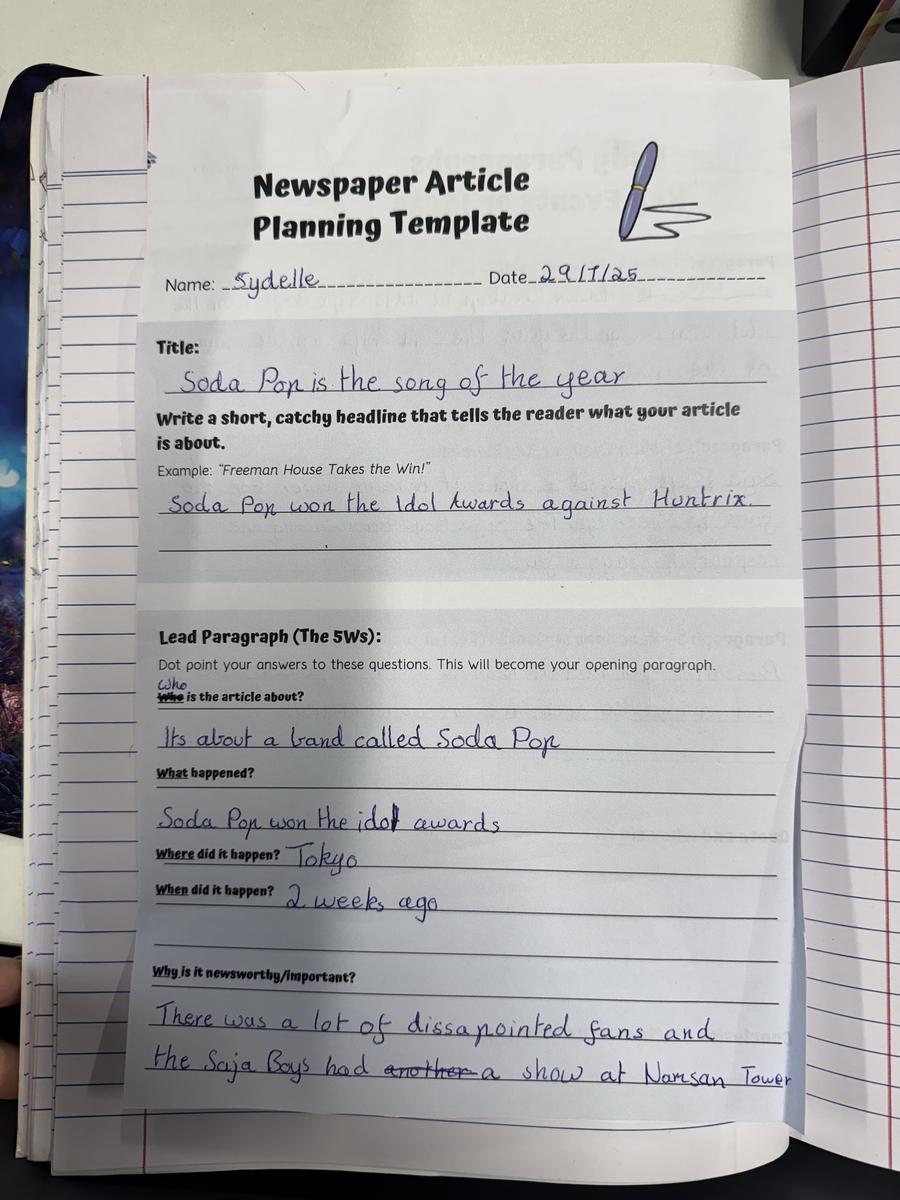 Newspaper Article
Planning Template
Name: Sydelle Date 29/7/25
Title:
Soda Pop is the song of the year
Write a short, catchy headline that tells the reader what your article
is about.
Example: "Freeman House Takes the Win!"
Soda Pop won the Idol Awards against Huntrix.
Lead Paragraph (The 5Ws):
Dot point your answers to these questions. This will become your opening paragraph.
Who
Who is the article about?
Its about a band called Soda Pop
What happened?
Soda Pop won the idol awards
Where did it happen? Tokyo
When did it happen? 2 weeks ago
Why is it newsworthy/important?
There was a lot of dissapointed fans and
the Saja Boys had another a show at Namsan Tower